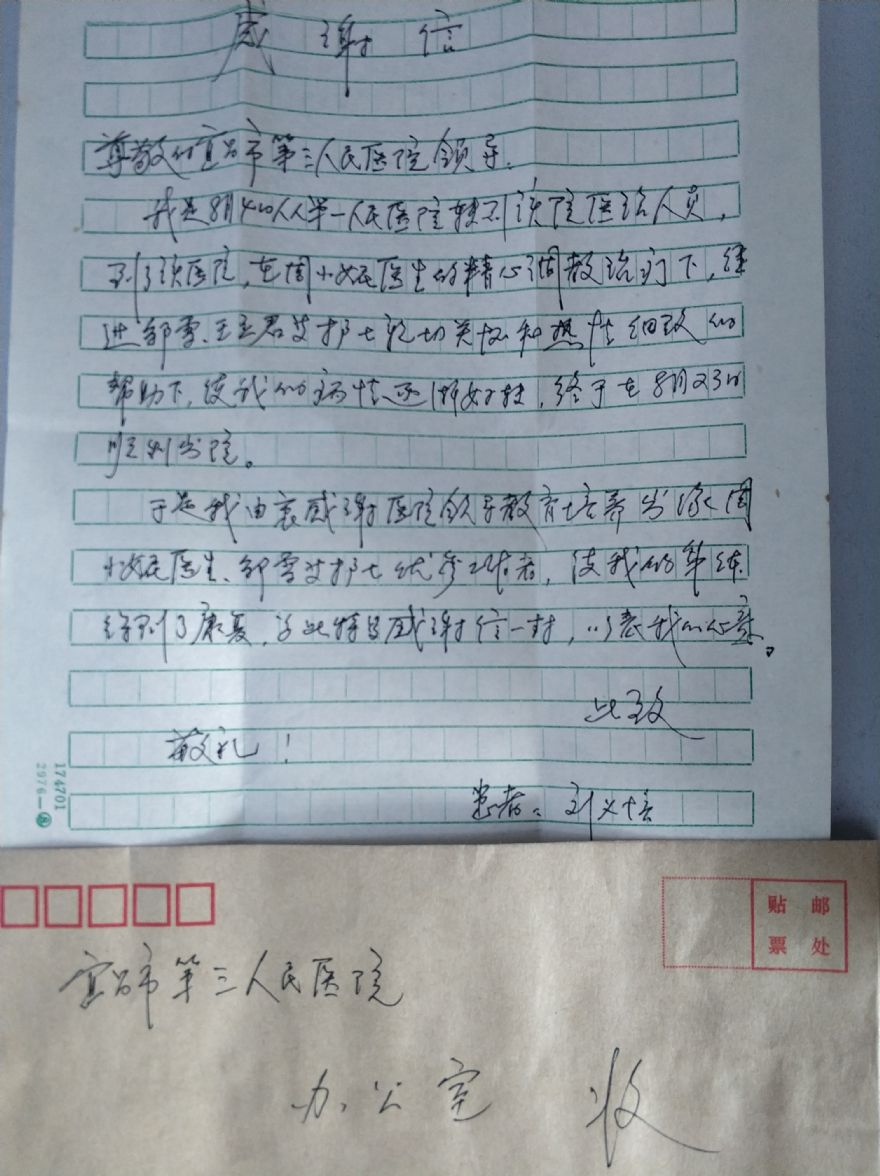 感谢信
尊敬的宜昌市第三人民医院领导:
我是8月4日从第一人民医院转到该院医治人员,
到了该医院,在周小妮医生的精心调教治疗下,经
过邹雪、王孟君女护士亲切关怀和热性细致的
帮助下,使我的病情逐渐好转,终于在8月23日
顺利出院。
于是我由衷感谢医院领导教育培养出像周
小妮医生、邹雪女护士优秀工作者,使我的身体
得到了康复,为此特写感谢信一封,以表我的心意。
此致
敬礼!
患者:刘义培
174701
2976—
宜昌市第三人民医院
办公室 收
贴邮
票处